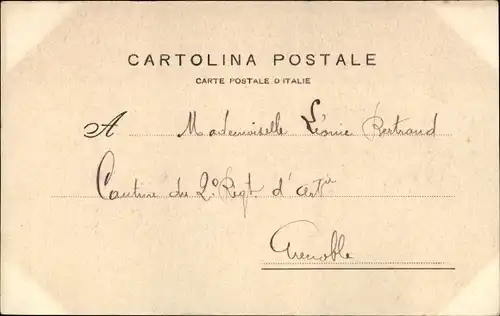 CARTOLINA POSTALE
CARTE POSTALE D'ITALIE
A Mademoiselle Léonie Bertrand
Cantine du 2º Regt. d'Artie
Grenoble